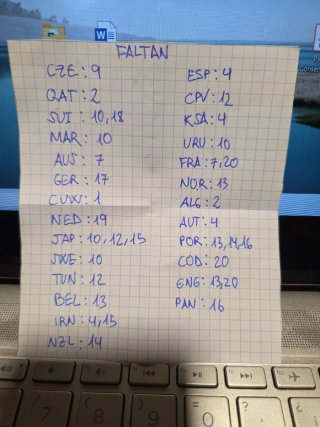 FALTAN
CZE: 9
QAT: 2
SUI: 10,18
MAR: 10
AUS: 7
GER: 17
CUW: 1
NED: 19
JAP: 10,12,15
SWE: 10
TUN: 12
BEL: 13
IRN: 4,15
NZL: 14
ESP: 4
CPV: 12
KSA: 4
URU: 10
FRA: 7,20
NOR: 13
ALG: 2
AUT: 4
POR: 13,14,16
COD: 20
ENG: 13,20
PAN: 16